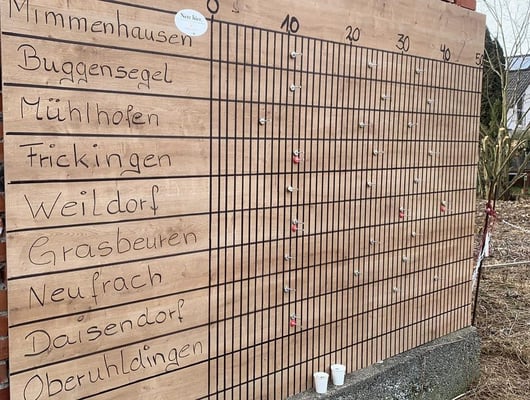 0 10 20 30 40 50
Mimmenhausen
Buggensegel
Mühlhofen
Frickingen
Weildorf
Grasbeuren
Neufrach
Daisendorf
Oberuhldingen